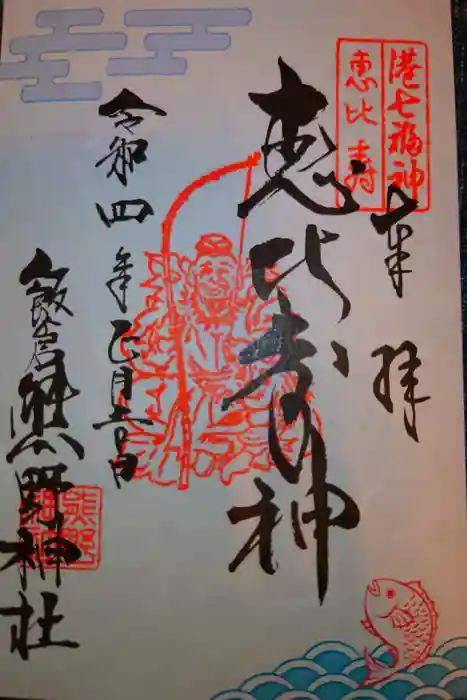 港七福神
恵比寿
奉拝
恵比寿神
令和四年正月七日
飯倉熊野神社
熊野